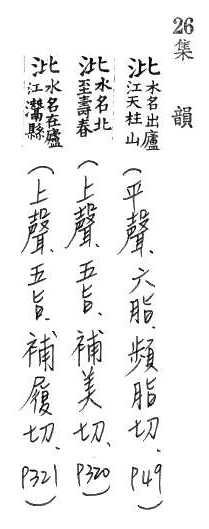 26集韻
沘水名出廬江天柱山（平聲、六脂、頻脂切、P49）
沘水名北至壽春（上聲、五旨、補美切、P320）
沘水名在廬江灊縣（上聲、五旨、補履切、P321）